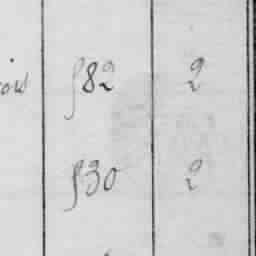 §82 2
§30 2